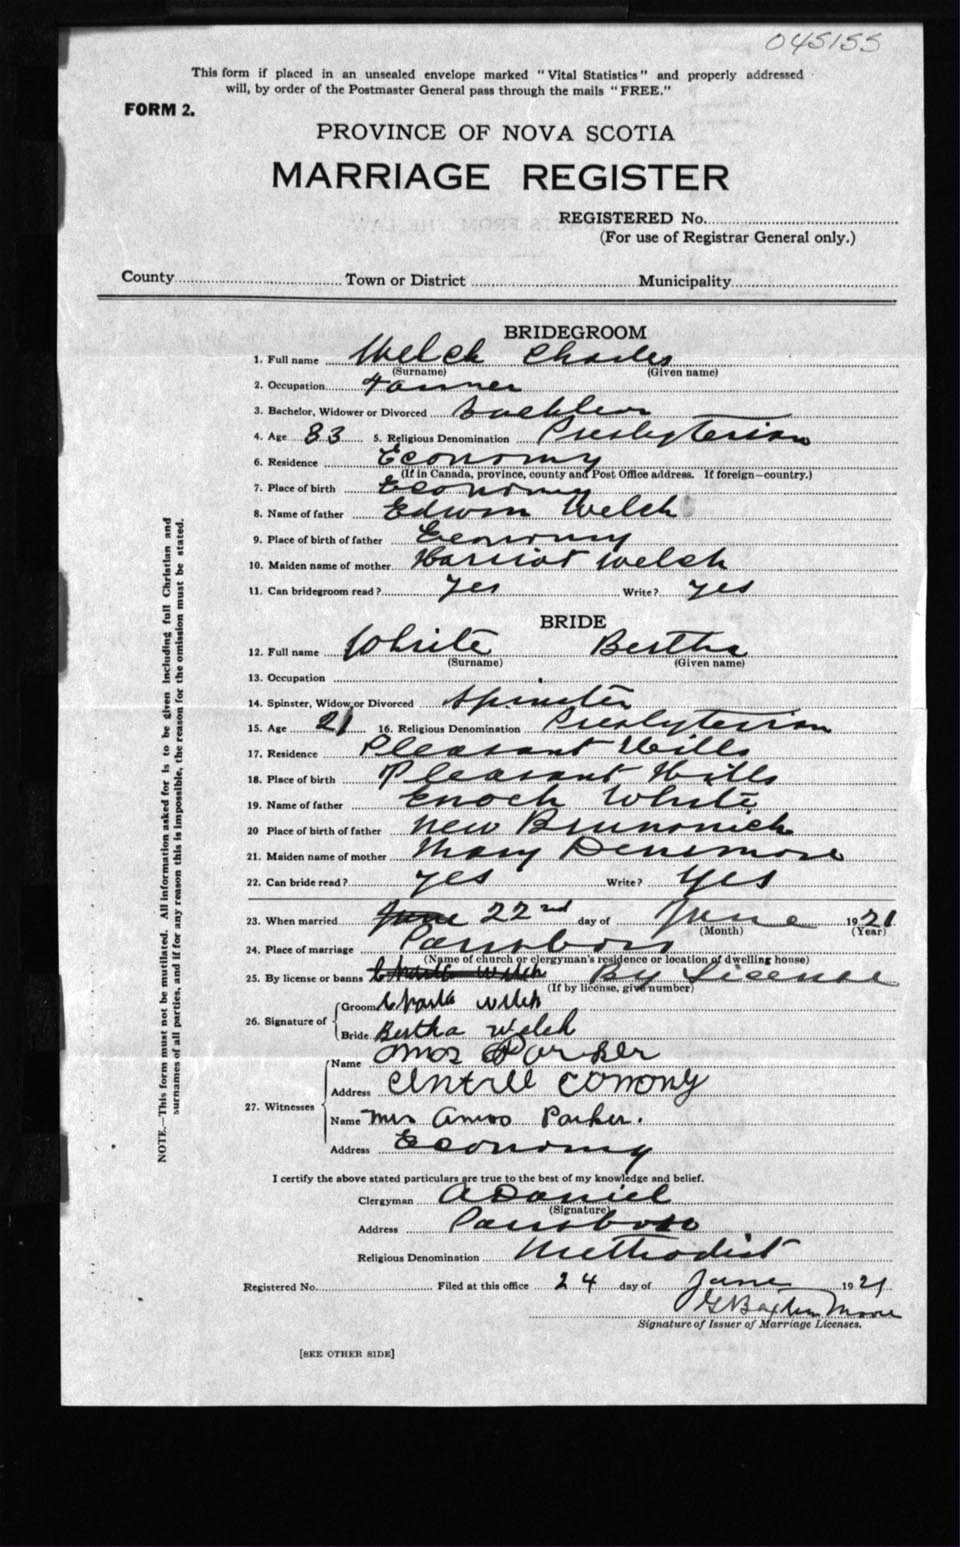 045155
This form if placed in an unsealed envelope marked "Vital Statistics" and properly addressed
will, by order of the Postmaster General pass through the mails "FREE."
FORM 2.
PROVINCE OF NOVA SCOTIA
MARRIAGE REGISTER
REGISTERED No.
(For use of Registrar General only.)
County Town or District Municipality
BRIDEGROOM
1. Full name Welch Charles
(Surname) (Given name)
2. Occupation
3. Bachelor, Widower or Divorced
4. Age 33 5. Religious Denomination Presbyterian
6. Residence Economy
(If in Canada, province, county and Post Office address. If foreign—country.)
7. Place of birth Economy
8. Name of father Edwin Welch
9. Place of birth of father Economy
10. Maiden name of mother Harriot Welch
11. Can bridegroom read? yes Write? yes
BRIDE
12. Full name White Bertha
(Surname) (Given name)
13. Occupation
14. Spinster, Widow or Divorced Spinster
15. Age 21 16. Religious Denomination Presbyterian
17. Residence Pleasant Hills
18. Place of birth Pleasant Hills
19. Name of father Enoch White
20 Place of birth of father New Brunswick
21. Maiden name of mother Mary Densmore
22. Can bride read? yes Write? yes
23. When married June 22nd day of June 1921
(Month) (Year)
24. Place of marriage Parrsboro
(Name of church or clergyman's residence or location of dwelling house)
25. By license or banns By License
(If by license, give number)
26. Signature of Groom Welch
Bride Bertha Welch
27. Witnesses Name Parker
Address
Name Mrs Amos Parker.
Address Economy
I certify the above stated particulars are true to the best of my knowledge and belief.
Clergyman A Daniel
(Signature)
Address Parrsboro
Religious Denomination Methodist
Registered No. Filed at this office 24 day of June 1921
Moore
Signature of Issuer of Marriage Licenses.
[SEE OTHER SIDE]
NOTE.—This form must not be mutilated. All information asked for is to be given including full Christian and
surnames of all parties, and if for any reason this is impossible, the reason for the omission must be stated.